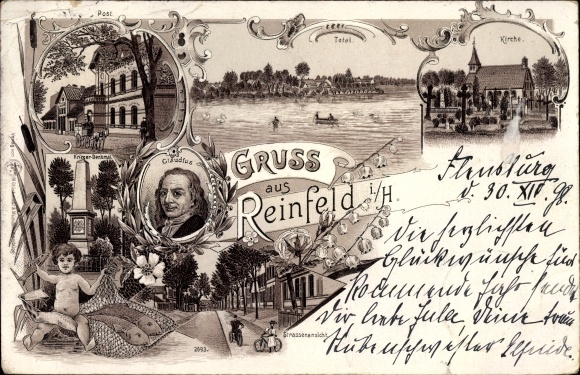 Post.
Total.
Kirche.
Krieger-Denkmal
Claudius
GRUSS
aus
Reinfeld i/H.
Strassenansicht
2693.
Flensburg
d. 30. XII 98.
Die herzlichsten
Glückwünsche für
kommende Jahr sendet
Dir liebe Deine treue
Stubenschwester